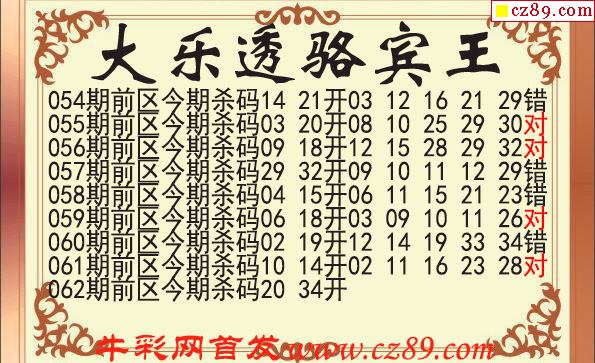 cz89.com
大乐透骆宾王
054期前区今期杀码14 21开03 12 16 21 29错
055期前区今期杀码03 20开08 10 25 29 30对
056期前区今期杀码09 18开12 15 28 29 32对
057期前区今期杀码29 32开09 10 11 12 29错
058期前区今期杀码04 15开06 11 15 21 23错
059期前区今期杀码06 18开03 09 10 11 26对
060期前区今期杀码02 19开12 14 19 33 34错
061期前区今期杀码10 14开02 11 16 23 28对
062期前区今期杀码20 34开
牛彩网首发www.cz89.com